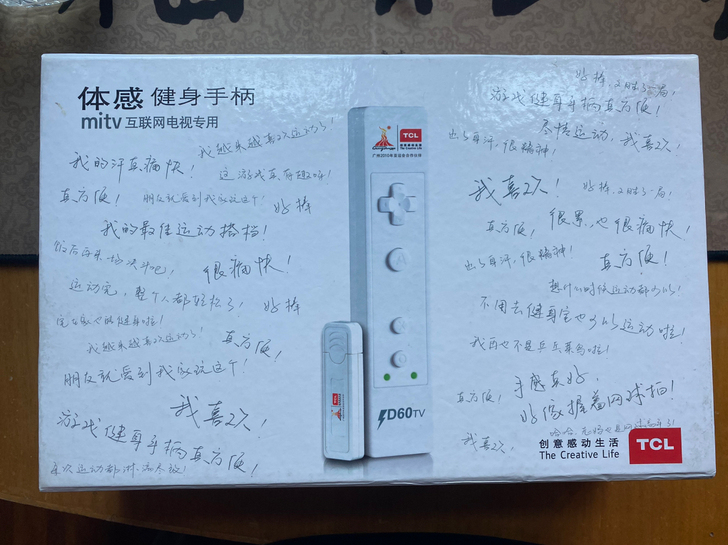 体感 健身手柄
mitv 互联网电视专用
我越来越喜欢运动了!
我的汗真痛快!
这游戏真有趣呀!
真方便!
朋友就爱到我家玩这个!
好棒
我的最佳运动搭档!
饭后再来一场决斗吧!
很痛快!
运动完,整个人都轻松了!
好棒
我越来越喜欢运动了!
真方便!
朋友就爱到我家玩这个!
我喜欢!
游戏健身手柄真方便!
每次运动都淋漓尽致!
TCL
创意感动生活
The Creative Life
广州2010年亚运会合作伙伴
A
D60TV
好棒,又胜了一局!
游戏健身手柄真方便!
尽情运动,我喜欢!
出了身汗,很精神!
我喜欢!
好棒,又胜了一局!
真方便,
很累,也很痛快!
出了身汗,很精神!
真方便!
想什么时候运动都可以!
不用去健身室也可以运动啦!
我再也不是乒乓菜鸟啦!
真方便!
手感真好,
好像握着网球拍!
我喜欢,
创意感动生活
The Creative Life
TCL